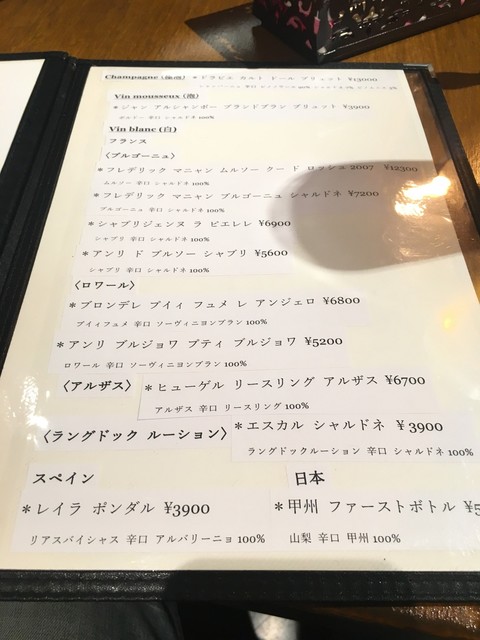 Champagne (極泡) ＊ドラピエ カルト ドール ブリュット ¥13000
Vin mousseux (泡)
＊ジャン アルシャンボー ブランドブラン ブリュット ¥3900
辛口 シャルドネ 100%
Vin blanc (白)
フランス
〈ブルゴーニュ〉
＊フレデリック マニャン ムルソー クー ド ロッシュ 2007 ¥12300
ムルソー 辛口 シャルドネ 100%
＊フレデリック マニャン ブルゴーニュ シャルドネ ¥7200
ブルゴーニュ 辛口 シャルドネ 100%
＊シャブリジェンヌ ラ ピエレレ ¥6900
シャブリ 辛口 シャルドネ 100%
＊アンリ ド ブルソー シャブリ ¥5600
シャブリ 辛口 シャルドネ 100%
〈ロワール〉
＊ブロンデレ プイィ フュメ レ アンジェロ ¥6800
プイィフュメ 辛口 ソーヴィニヨンブラン 100%
＊アンリ ブルジョワ プティ ブルジョワ ¥5200
ロワール 辛口 ソーヴィニヨンブラン 100%
〈アルザス〉 ＊ヒューゲル リースリング アルザス ¥6700
アルザス 辛口 リースリング 100%
〈ラングドック ルーション〉 ＊エスカル シャルドネ ¥3900
ラングドックルーション 辛口 シャルドネ 100%
スペイン
＊レイラ ボンダル ¥3900
リアスバイシャス 辛口 アルバリーニョ 100%
日本
＊甲州 ファーストボトル ¥5
山梨 辛口 甲州 100%